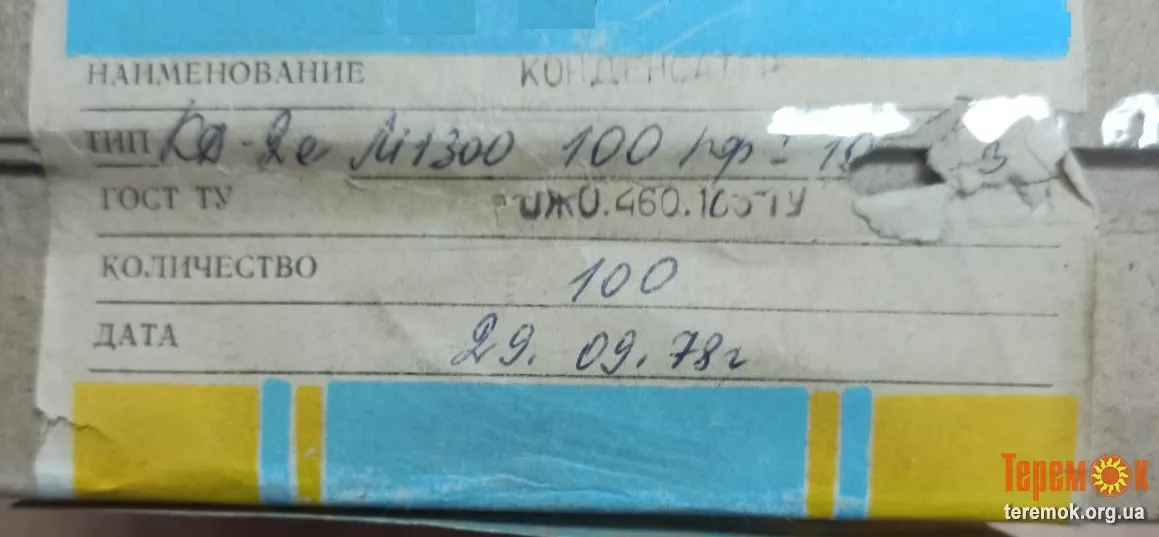 НАИМЕНОВАНИЕ КОНДЕНСАТОР
ТИП КД-2е М1300 100 пф ± 10
ГОСТ ТУ ОЖ0.460.165ТУ
КОЛИЧЕСТВО 100
ДАТА 29.09.78г
Теремок
teremok.org.ua